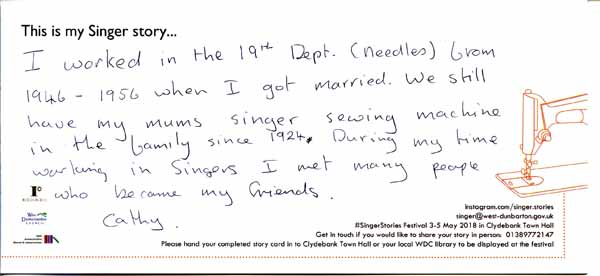 This is my Singer story...
I worked in the 19th Dept. (needles) from
1946 - 1956 when I got married. We still
have my mums singer sewing machine
in the family since 1924. During my time
working in Singers I met many people
who became my friends.
Cathy.
instagram.com/singer.stories
singer@west-dunbarton.gov.uk
#SingerStories Festival 3-5 May 2018 in Clydebank Town Hall
Get in touch if you would like to share your story in person: 01389772147
Please hand your completed story card in to Clydebank Town Hall or your local WDC library to be displayed at the festival